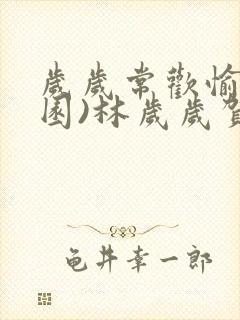 歲歲常歡愉
園)林歲歲賀
龟井幸一郎